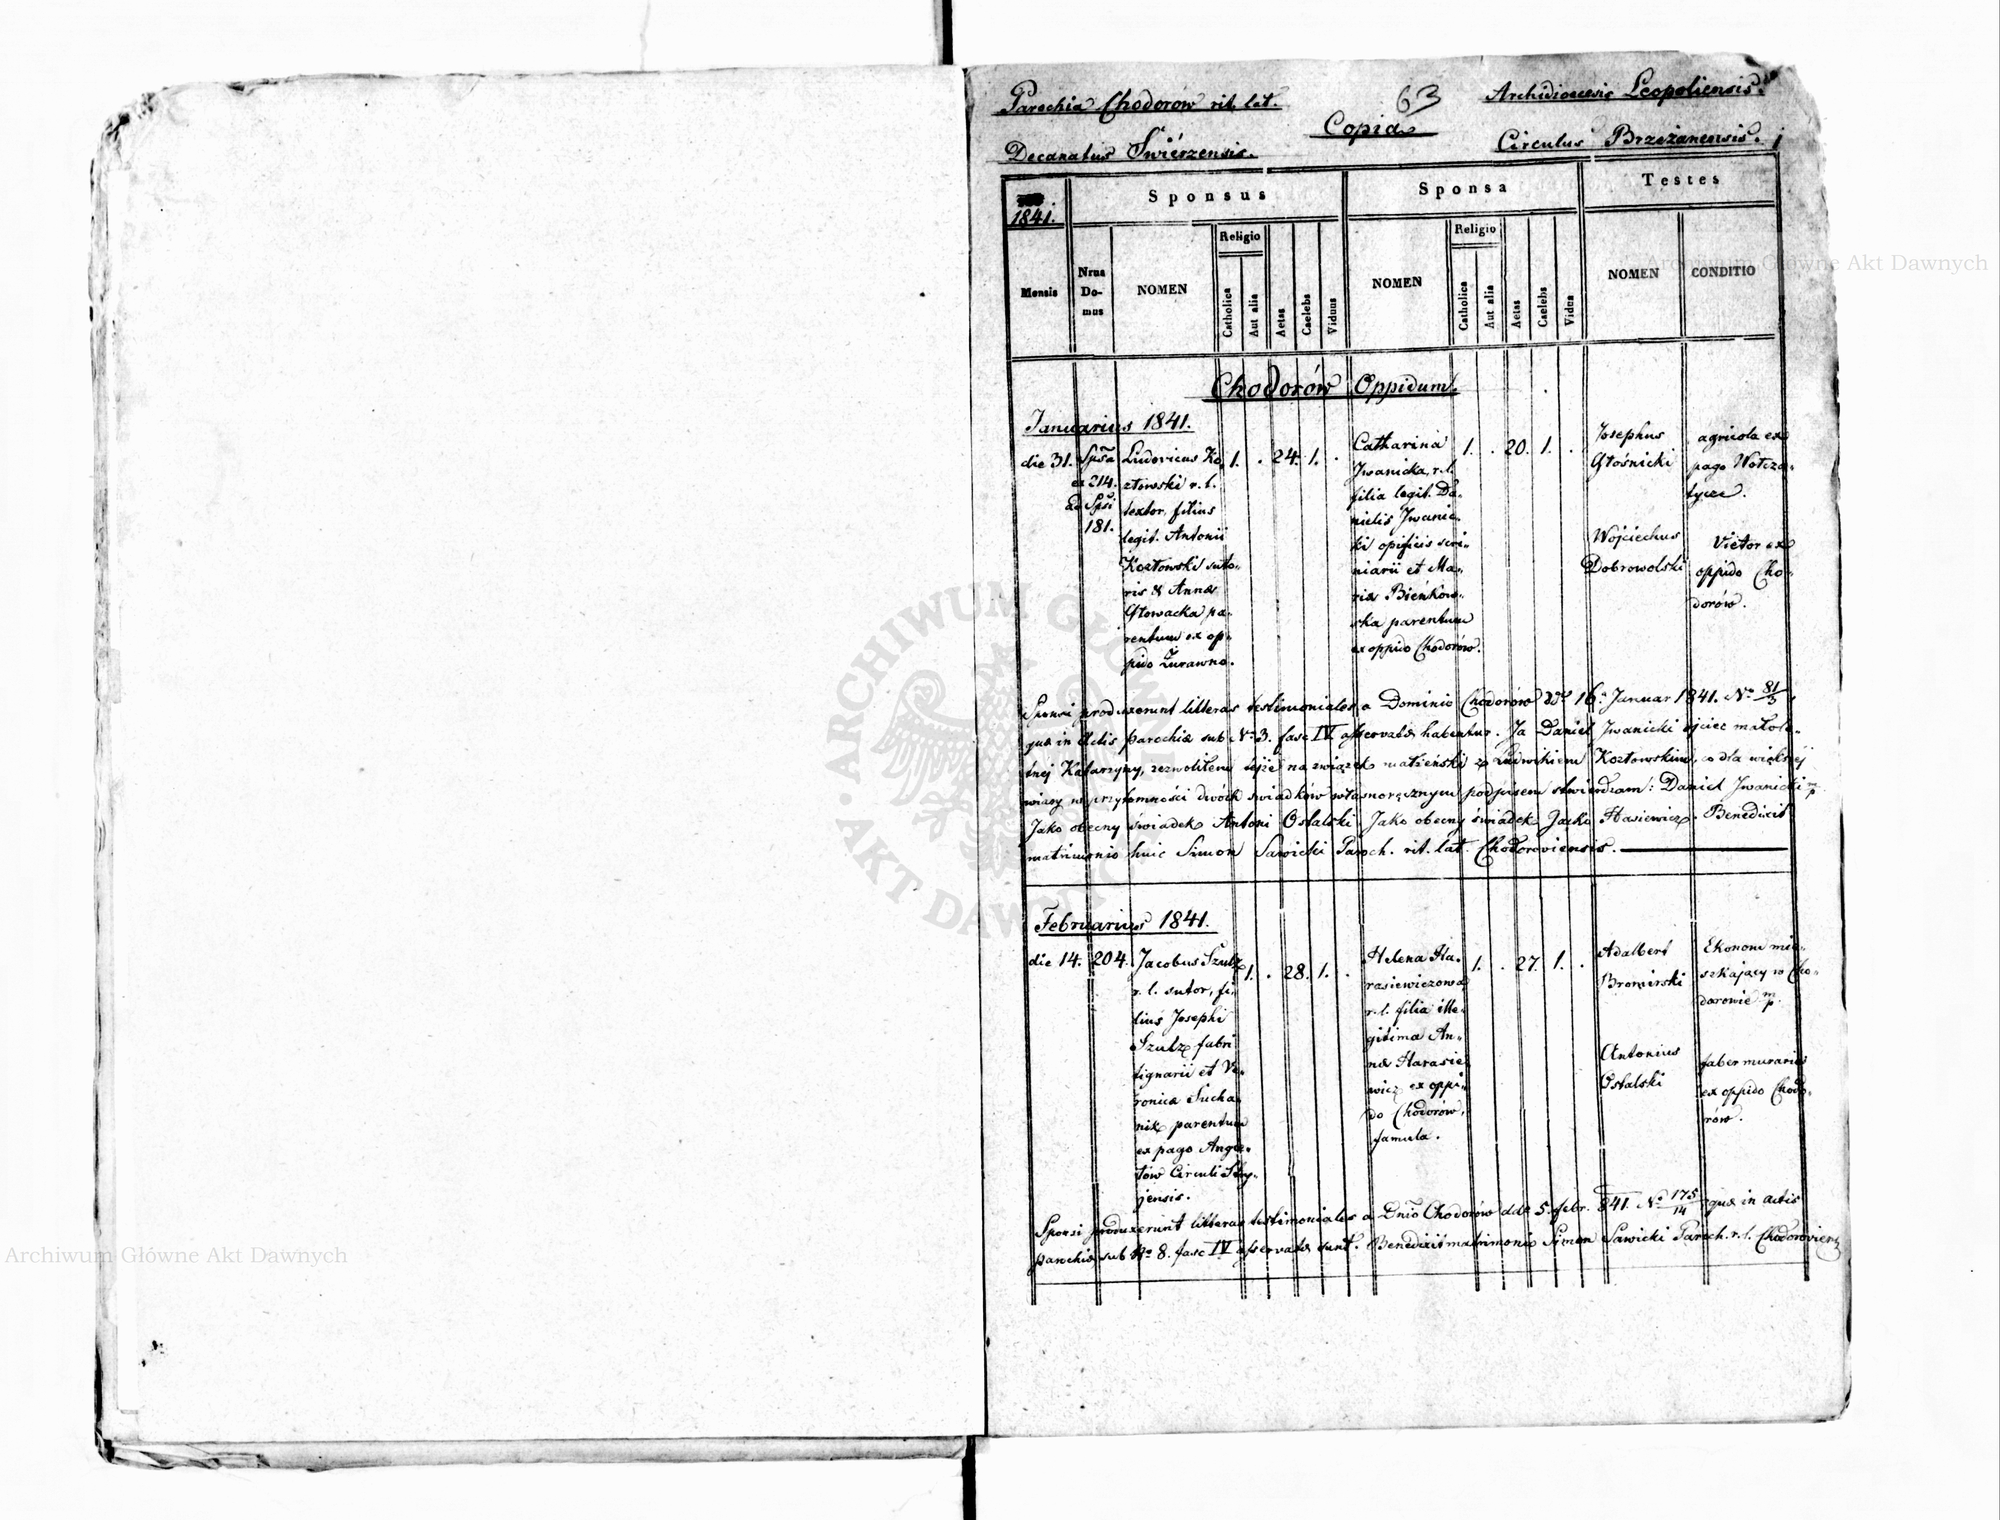 Parochia Chodorów rit. lat.
63
Archidioecesis Leopoliensis.
Copia
Decanatus Swiérzensis.
Circulus Brzeżanensis.
1841.
Sponsus
Sponsa
Testes
Mensis
Nrus Do- mus
NOMEN
Religio
Catholica
Aut alia
Aetas
Caelebs
Viduus
NOMEN
Religio
Catholica
Aut alia
Aetas
Caelebs
Vidua
NOMEN
CONDITIO
Chodorów Oppidum.
Januarius 1841.
die 31.
Spsa
ex 214.
ad Spsi
181.
Ludovicus Ko-
złowski r. l.
textor, filius
legit. Antonii
Kozłowski suto-
ris & Annæ
Głowacka pa-
rentum ex op-
pido Żurawno.
1. . 24. 1. .
Catharina
Jwanicka, r. l.
filia legit. Da-
nielis Jwanic-
ki opificis scri-
niarii et Ma-
riæ Bieńkow-
ska parentum
ex oppido Chodorów.
1. . 20. 1. .
Josephus
Głośnicki
agricola ex
pago Wołcza-
tycze.
Wojciechus
Dobrowolski
Vietor ex
oppido Cho-
dorów.
Sponsi produxerunt litteras testimoniales a Dominio Chodorów 16. Januar 1841. No 81/3.
quæ in Actis parochiæ sub No 3. fasc IV asservatæ habentur. Ja Daniel Jwanicki ojciec małole-
tnej Katarzyny, zezwoliłem tejże na związek małżeński z Ludwikiem Kozłowskim, co dla większej
wiary w przytomności dwóch świadków własnoręcznym podpisem stwierdzam: Daniel Jwanicki mp
Jako obecny świadek Antoni Ostalski. Jako obecny świadek Jacko Hasiewicz. Benedixit
matrimonio huic Simon Sawicki Paroch. rit. lat. Chodoroviensis.
Februarius 1841.
die 14. 204.
Jacobus Szulz
r. l. sutor, fi-
lius Josephi
Szulz fabri
lignarii et Ve-
ronicæ Sucha-
nik parentum
ex pago Angie-
łów Circuli Stry-
jensis.
1. . 28. 1. .
Helena Ha-
rasiewiczowa
r. l. filia ille-
gitima An-
næ Harasie-
wicz ex oppi-
do Chodorów,
famula.
1. . 27. 1. .
Adalbert
Bronierski
Ekonom mie-
szkający w Cho-
dorowie mp.
Antonius
Ostalski
faber murarius
ex oppido Chodo-
rów.
Sponsi produxerunt litteras testimoniales a Dnio Chodorów ddo 5. febr. 841. No 175/14 quæ in actis
parochiæ sub No 8. fasc IV asservatæ sunt. Benedixit matrimonio Simon Sawicki Paroch. r. l. Chodorovien
Archiwum Główne Akt Dawnych
Archiwum Główne Akt Dawnych
ARCHIWUM GŁÓWNE AKT DAWNYCH